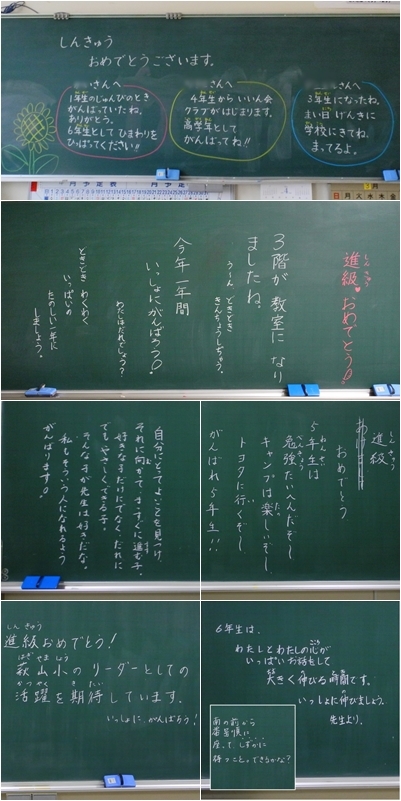 しんきゅう
おめでとうございます。
さんへ
1年生のじゅんびのとき
がんばっていたね。
ありがとう。
6年生として ひまわりを
ひっぱってください!!
さんへ
4年生から いいん会
クラブがはじまります。
高学年として
がんばってね!!
さんへ
3年生になったね。
まい日 げんきに
学校にきてね。
まってるよ。
月予定表
月火水木金
進級♥おめでとう!
しん きゅう
3階が 教室に なり
ましたね。
う〜ん どきどき
きんちょうしちゃう。
今年一年間
いっしょにがんばろう。
わたしはだれでしょう?
どきどき わくわく
いっぱいの
たのしい一年に
しましょう。
自分にとってよいことを見つけ
それに向かって、まっすぐに進む子。
好きな子だけにでなく、だれに
でもやさしくできる子。
そんな子が先生は好きだな。
私もそういう人になれるよう
がんばります。
進級
しんきゅう
おめでとう
5年生は
勉強たいへんだぞ〜
キャンプは楽しいぞ〜
トヨタに行くぞ〜
がんばれ5年生!!
しん きゅう
進級おめでとう!
はぎ やま しょう
萩山小のリーダーとしての
かつやく き たい
活躍を期待しています。
いっしょに、がんばろう!
6年生は、
わたしとわたしの心が
いっぱいお話をして
大きく伸びる時間です。
いっしょに伸びましょう。
先生より。
前の前から
番号順に
座って、しずかに
待つこと。できるかな?